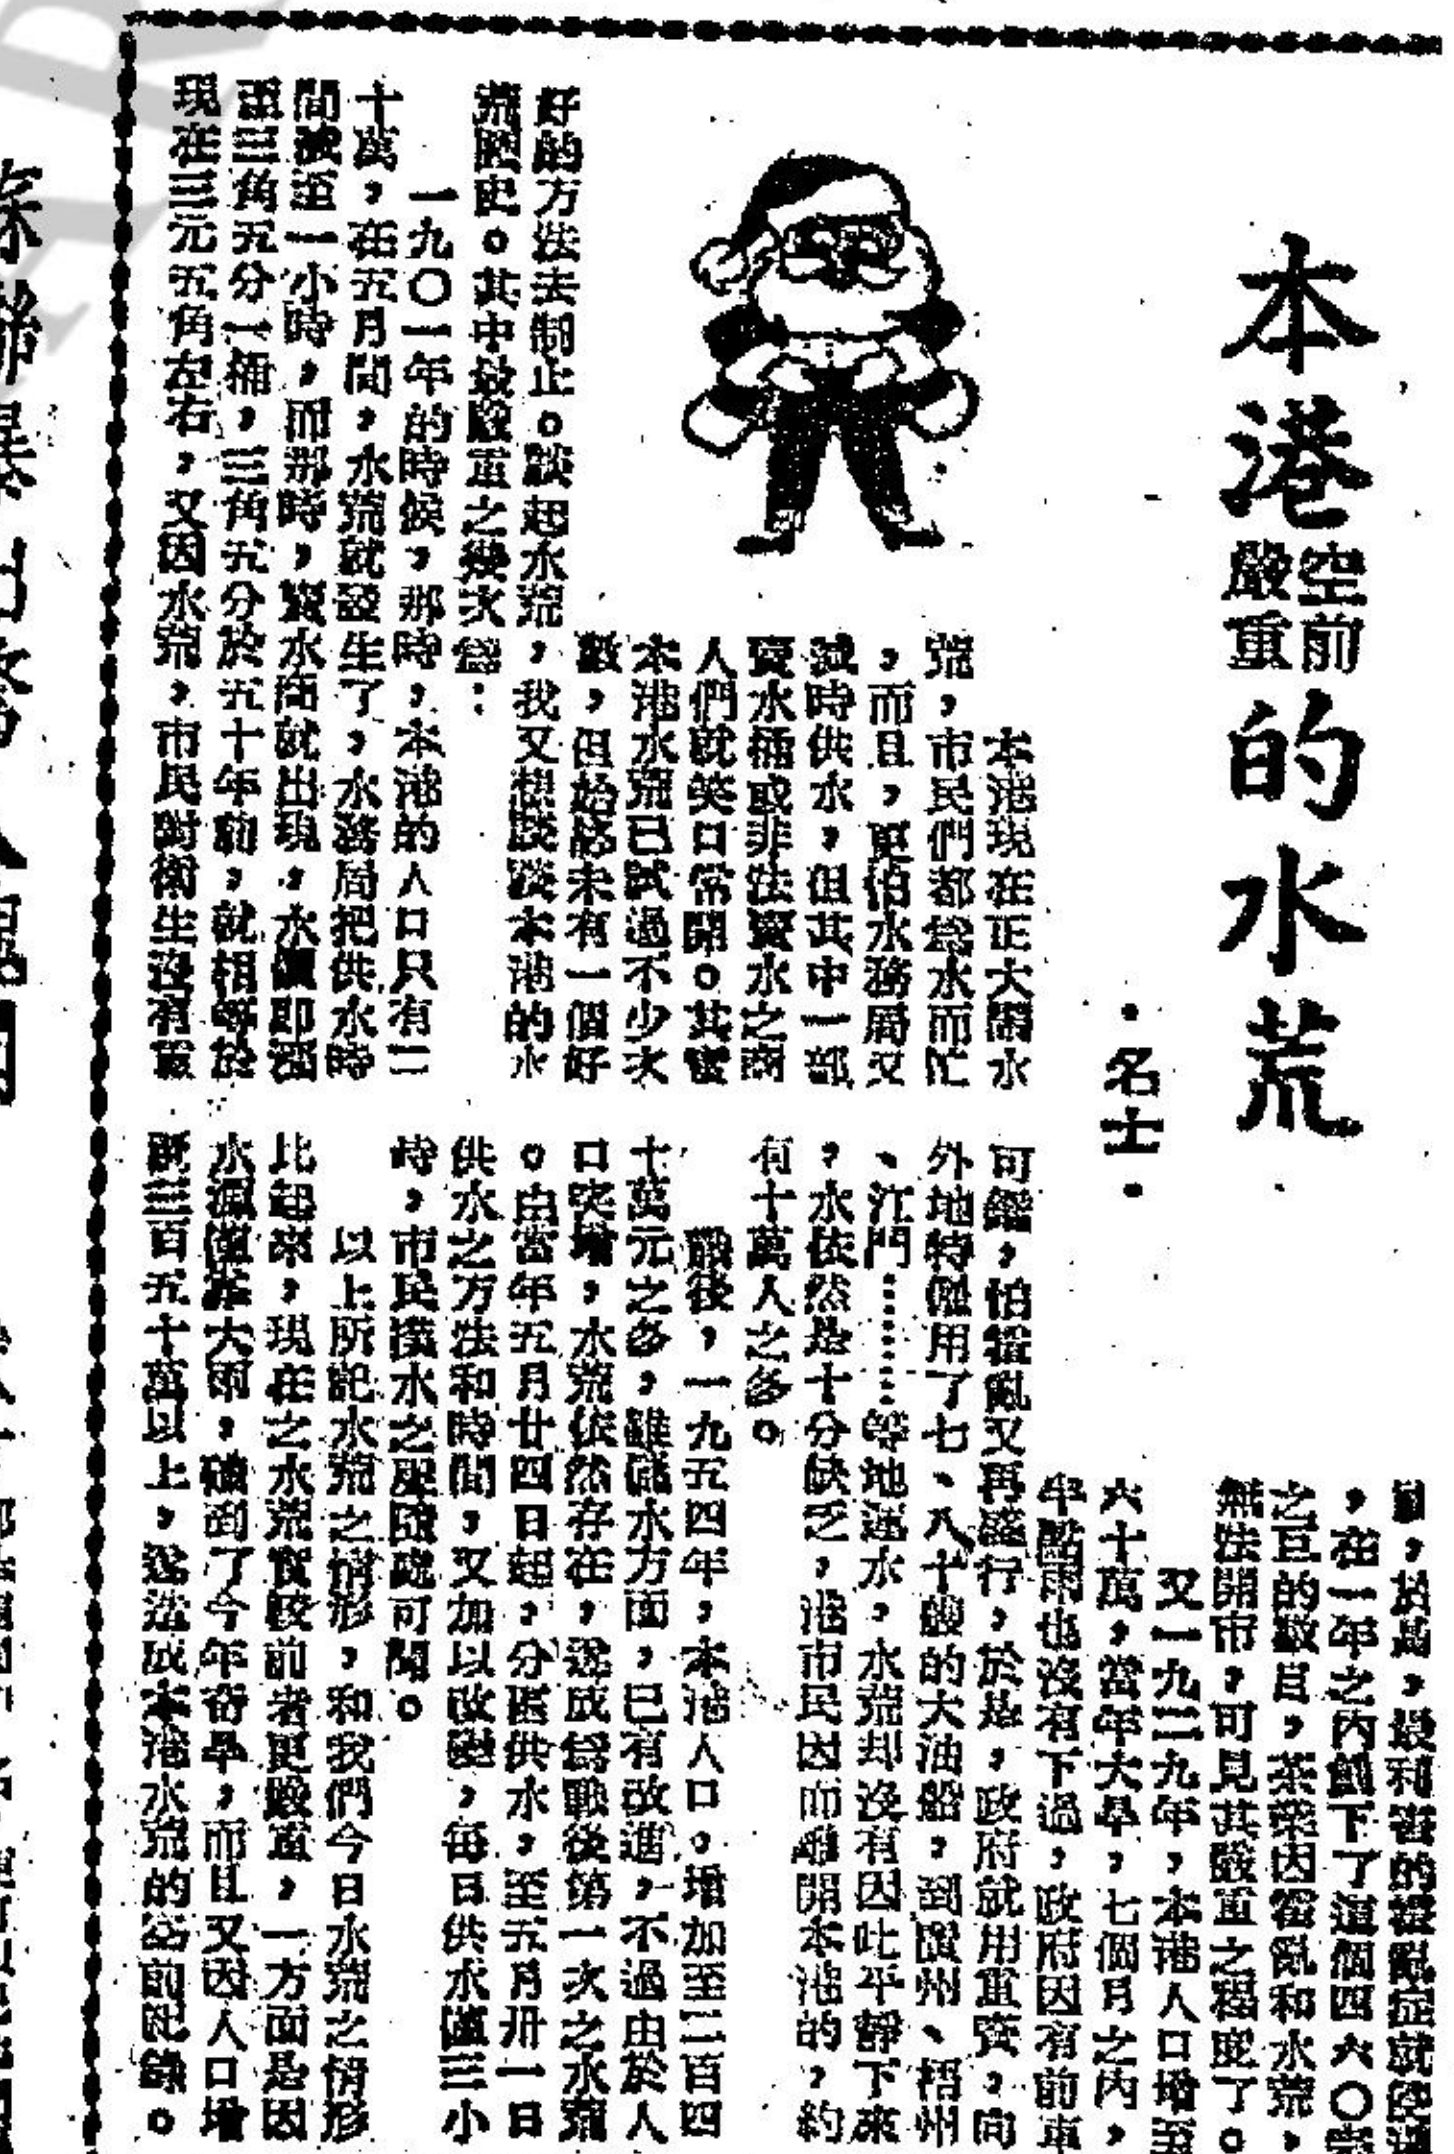 本港空前嚴重的水荒
・名士・
本港現在正大鬧水
荒，市民們都為水而忙
，而且，更怕水務局又
減時供水，但其中一部
賣水桶或非法賣水之商
人們就笑口常開。其實
本港水荒已試過不少次
數，但始終未有一個好
好的方法去制止。談起水荒，我又想談談本港的水
荒歷史。其中最嚴重之幾次為：
一九〇一年的時候，那時，本港的人口只有二
十萬，在五月間，水荒就發生了，水務局把供水時
間減至一小時，而那時，賣水商就出現，水價即漲
至三角五分一桶，三角五分於五十年前，就相等於
現在三元五角左右，又因水荒，市民對衛生沒有
，於是，最利害的霍亂症就
，在一年之內餓下了這個四六〇
之巨的數目，茶業因霍亂和水荒，
無法開市，可見其嚴重之程度了。
又一九二九年，本港人口增至
六十萬，當年大旱，七個月之內，
半點雨也沒有下過，政府因有前車
可鑑，怕霍亂又再盛行，於是，政府就用重資，向
外地特僱用了七、八十艘的大油船，到廣州、梧州
、江門……等地運水，水荒却沒有因此平靜下來
，水依然是十分缺乏，港市民因而離開本港的，約
有十萬人之多。
戰後，一九五四年，本港人口。增加至二百四
十萬元之多，雖儲水方面，已有改進，不過由於人
口突增，水荒依然存在，遂成為戰後第一次之水荒
。由當年五月廿四日起，分區供水，至五月卅一日
供水之方法和時間，又加以改變，每日供水僅三小
時，市民撲水之聲隨處可聞。
以上所記水荒之情形，和我們今日水荒之情形
比起來，現在之水荒實較前者更嚴重，一方面是因
水源僅靠大雨，碰到了今年奇旱，而且又因人口增
至三百五十萬以上，遂造成本港水荒的空前記錄。